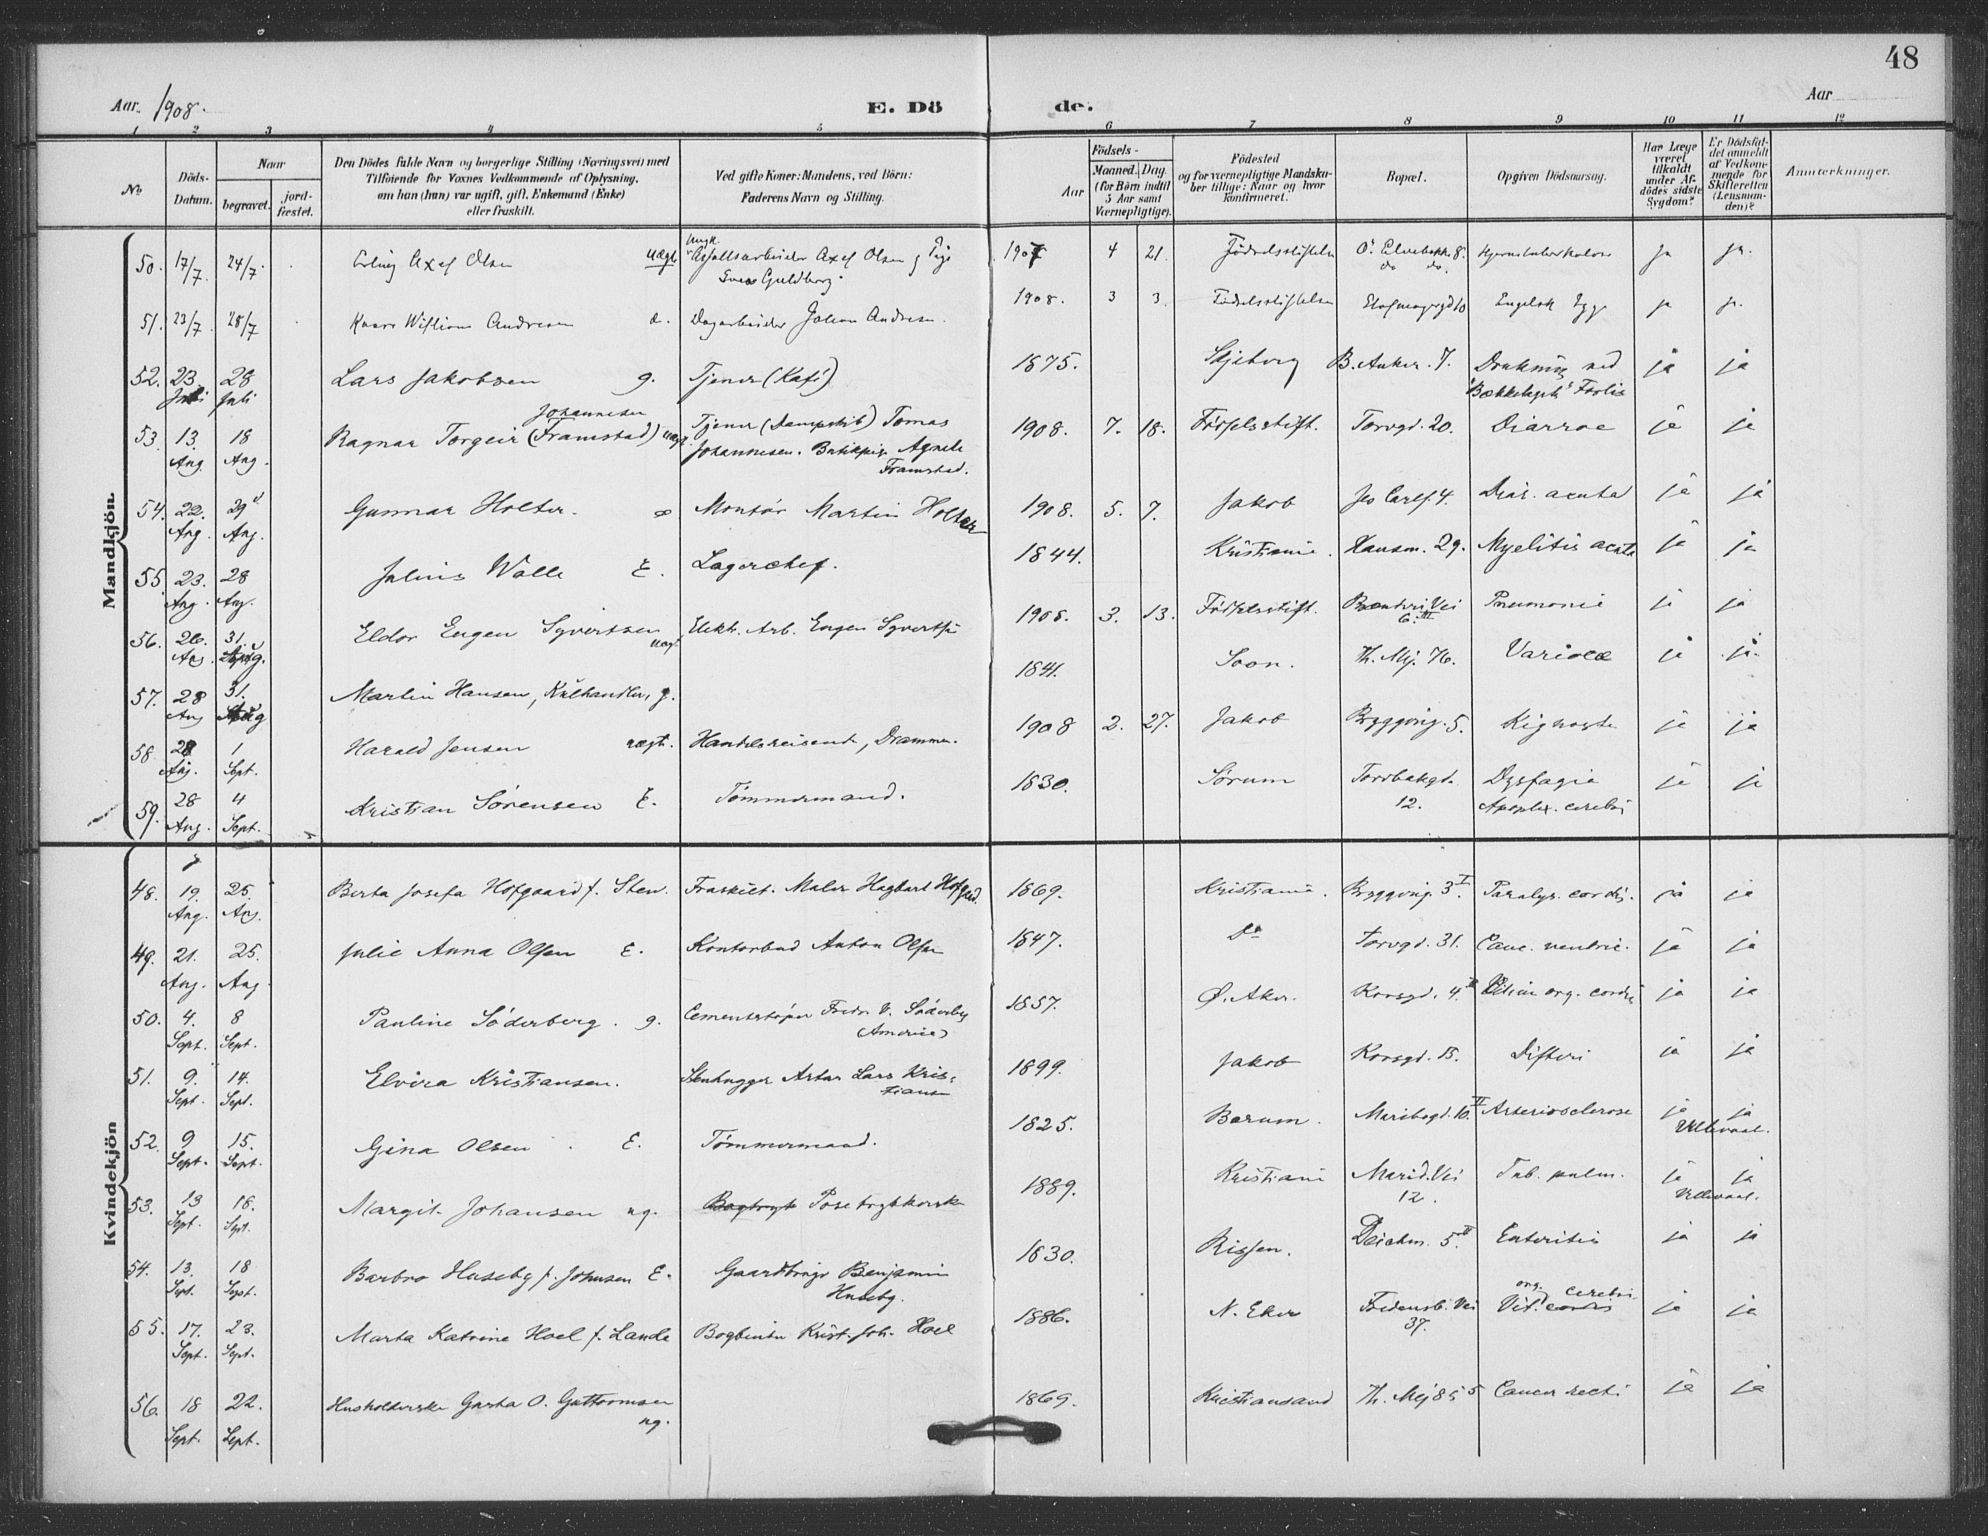 48
Aar. 1908.
E. Dö de.
Aar
1 2 3 4 5 6 7 8 9 10 11 12
No
Döds-Datum.
Naar
begravet.
jord-fæstet.
Den Dödes fulde Navn og borgerlige Stilling (Næringsvei) med
Tilföiende for Voxnes Vedkommende af Oplysning,
om han (hun) var ugift, gift, Enkemand (Enke)
eller fraskilt.
Ved gifte Koner: Mandens, ved Börn:
Faderens Navn og Stilling.
Födsels-
Aar
Maaned. Dag
(for Börn indtil
5 Aar samt
Værnepligtige).
Födested
og for værnepligtige Mandska-
ber tillige: Naar og hvor
konfirmeret.
Bopæl.
Opgiven Dödsaarsag.
Har Læge
været
tilkaldt
under Af-
dödes sidste
Sygdom?
Er Dödsfal-
det anmeldt
af Vedkom-
mende for
Skifteretten
(Lensman-
den)?
Anmærkninger.
Mandkjön.
50. 17/7. 24/7. Erling Axel Olsen uægt. Asfaltarbeider Axel Olsen 1907 4 21. Födselsstiftelsen ja ja.
51. 23/7. 28/7 Wiftions Andresen Dagarbeider Johan Andresen. 1908. 3 3. Födselsstiftelsen Engelsk Syge ja ja.
52. 23. Juli 28 Juli Lars Jakobsen g. Tjener (Kafé) 1875. Skjeberg B. Anker. 7. Drukning ved "Bækkelaget" ja ja
53. 13. Aug 18 Aug. Ragnar Torgeir Johannesen (Framstad) uægt. Tjener (Dampskib) Tomas Johannesen. Agnete Framstad. 1908. 7. 18. Födselsstift. Torvgd. 20. Diarroe ja ja
54. 22. Aug 29 Aug. Gunnar Holter. Montör Martin Holter 1908. 5. 7. Jakob Jes Carls. 4. Diar. acuta ja ja
55. 23. Aug. 28 Aug. Julius Wolle E. Lagerchef. 1844. Kristiania. Hausm. 29. Myelitis acuta ja ja
56. 26. Aug. 31. Aug. Eldor Eugen Syvertsen uægt. Elekt. Arb. Eugen Syvertsen 1908. 3. 13. Födselsstift. Vei 6 III Pneumonie ja ja
57. 28 Aug 31. Aug Martin Hansen, Kulhandler, g. 1841. Soon. Th. Mej. 76. Variolæ ja ja.
58. 28 Aug. 1 Sept. Harald Jensen uægt. Handelsreisende, Drammen. 1908 2. 27. Jakob Bryggvng. 5. Kighoste ja ja
59. 28 Aug. 4 Sept. Kristian Sörensen E. Tömmermand. 1830. Sörum Torvbakgd. 12. Dysfagia Apoplex. cerebri ja ja
Kvindekjön
48. 19. Aug. 25. Aug. Berta Josefa Hofgaard f. Sten. Fraskilt. Maler Hagbart Hofgrd. 1869. Kristiania. Bryggvng. 3 I. Paralys. cordis. ja ja
49. 21. Aug. 25. Aug Julie Anna Olsen E. Kontorbud Anton Olsen 1847. Do Torvgd. 31. Canc. ventric. ja ja
50. 4. Sept. 8 Sept. Pauline Söderberg. g. Cementstöper Fredr. V. Söderberg (America) 1857. Ö. Aker. Korsgd. 4. Vitium org. cordis ja ja
51. 9. Sept. 14. Sept. Elvira Kristiansen. Stenhugger Artur Lars Kristiansen 1899. Jakob Korsgd. Difteri ja ja
52. 9 Sept. 15. Sept. Gina Olsen E. Tömmermand. 1825. Bærum. Maribogd. 10. II Arteriosclerose ja ja Ullevaal.
53. 13 Sept. 18. Sept. Margit Johansen ug. Posetrykkerske 1889. Kristiania Marid. Vei 12. Tub. pulm. ja ja Ullevaal.
54. 13. Sept. 18 Sept. Barbro Huseby f. Johnsen E. Gaardbruger Benjamin Huseby. 1830. Rissen. Deichm. 5. II Enteritis ja ja
55. 17. Sept. 23. Sept. Marta Katrine Hoel f. Lande Bogbinder Krist. Joh. Hoel 1886. N. Eker Fredensb. Vei 37. Vit. org. cordis cerebri ja ja
56. 18 Sept. 22. Sept. Husholderske Garta O. Guttormsen ug. 1869. Kristiansand Th. Mej 85 5 Cancer recti ja ja